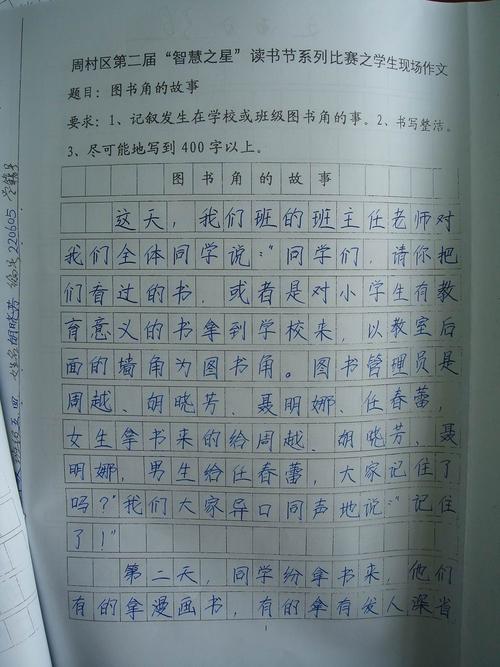 周村区第二届“智慧之星”读书节系列比赛之学生现场作文
题目：图书角的故事
要求：1、记叙发生在学校或班级图书角的事。2、书写整洁。
3、尽可能地写到400字以上。
图书角的故事
这天，我们班的班主任老师对
我们全体同学说：“同学们，请你把
们看过的书，或者是对小学生有教
育意义的书拿到学校来，以教室后
面的墙角为图书角。图书管理员是
周越、胡晓芳、聂明娜、任春蕾，
女生拿书来的给周越、胡晓芳、聂
明娜，男生给任春蕾，大家记住了
吗？”我们大家异口同声地说：“记住
了！”
第二天，同学纷拿书来，他们
有的拿漫画书，有的拿有发人深省
1
姓名胡晓芳 编号220605 学籍号